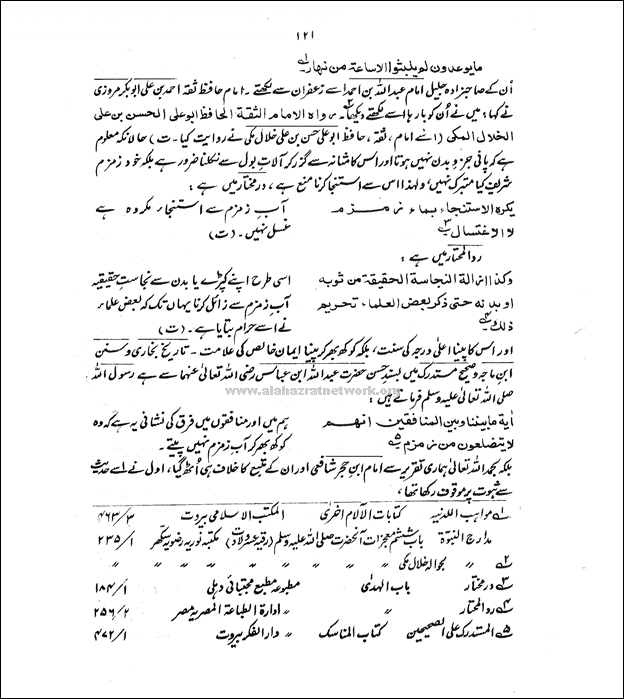 ۱۲۱
مایوعدون لم یلبثوا الا ساعۃ من نہار۱؎
اُن کے صاحبزادہ جلیل امام عبداللہ بن احمد اسے زعفران سے لکھتے۔ امام حافظ ثقہ احمد بن علی ابوبکر مروزی
نے کہا : میں نے اُن کو بارہا اسے لکھتے دیکھا۲؎ رواہ الامام الثقۃ الحافظ ابوعلی الحسن بن علی
الخلال المکی (اسے امام ، ثقہ ، حافظ ابوعلی حسن بن علی خلال مکی نے روایت کیا۔ ت) حالانکہ معلوم
ہے کہ پانی جزوِ بدن نہیں ہوتا اور اس کا مثانہ سے گزر کر آلاتِ بول سے نکلنا ضرور ہے بلکہ خود زمزم
شریف کیا متبرک نہیں ، ولہٰذا اس سے استنجا کرنا منع ہے ، درمختار میں ہے :
یکرہ الاستنجاء بماء زمزم آبِ زمزم سے استنجاء مکروہ ہے
لا الاغتسال۳؎ غسل نہیں۔ (ت)
ردالمحتار میں ہے :
وکذا ازالۃ النجاسۃ الحقیقۃ من ثوبہ اسی طرح اپنے کپڑے یا بدن سے نجاستِ حقیقیہ
او بدنہ حتی ذکر بعض العلماء تحریم آبِ زمزم سے زائل کرنا یہاں تک کہ بعض علماء
ذلک۴؎ نے اسے حرام بتایا ہے۔ (ت)
اور اس کا پینا اعلٰی درجہ کی سنت ، بلکہ کوکھ بھر کر پینا ایمان خالص کی علامت۔ تاریخ بخاری و سنن
ابن ماجہ و صحیح مستدرک میں بسندِ حسن حضرت عبداللہ ابن عباس رضی اللہ تعالٰی عنہما سے ہے رسول اللہ
صلی اللہ تعالٰی علیہ وسلم فرماتے ہیں :
www.alahazratnetwork.org
اٰیۃ ما بیننا وبین المنافقین انھم ہم میں اور منافقوں میں فرق کی نشانی یہ ہے کہ وہ
لا یتضلعون من زمزم۵؎ کوکھ بھر کر آبِ زمزم نہیں پیتے۔
بلکہ بحمد اللہ تعالٰی ہماری تقریر سے امام ابن حجر شافعی اور ان کے متبع کا خلاف ہی اُٹھ گیا ، اول نے اسے حدیث
سے ثبوت پر موقوف رکھا تھا ،
۱؎ مواہب اللدنیہ کتابات الآلام اخرٰی المکتب الاسلامی بیروت ۳/ ۴۶۳
مدارج النبوۃ باب ششم معجزات آنحضرت صلی اللہ علیہ وسلم مکتبہ نوریہ رضویہ سکھر ۱/ ۲۳۵
۲؎ // // بحوالہ خلال مکی // // // // // //
۳؎ درمختار باب الہدٰی مطبوعہ مطبع مجتبائی دہلی ۱/ ۱۸۴
۴؎ ردالمحتار // // ادارۃ الطباعۃ المصریہ مصر ۲/ ۲۵۶
۵؎ المستدرک علی الصحیحین کتاب المناسک // دارالفکر بیروت ۱/ ۴۷۲